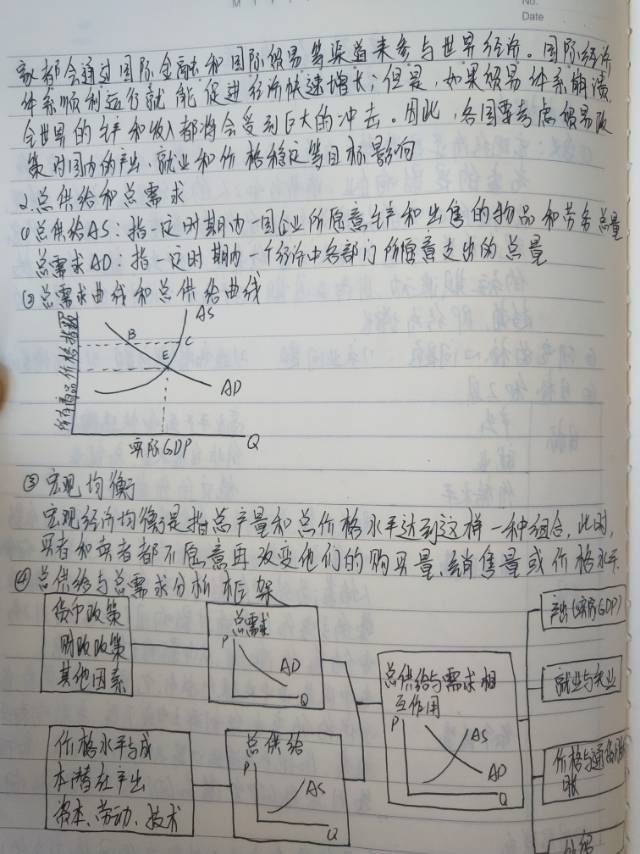 No.
Date
家都会通过国际金融和国际贸易等渠道来参与世界经济。国际经济
体系顺利运行就能促进经济快速增长；但是，如果贸易体系崩溃
全世界的生产和收入都将会受到巨大的冲击。因此，各国要考虑贸易政
策对国内的产出、就业和价格稳定等目标影响
2.总供给和总需求
①总供给AS：指一定时期内一国企业所愿意生产和出售的物品和劳务总量
总需求AD：指一定时期内一个经济中各部门所愿意支出的总量
②总需求曲线和总供给曲线
AS
B
C
E
AD
所有商品价格指数
实际GDP
Q
③宏观均衡
宏观经济均衡是指总产量和总价格水平达到这样一种组合，此时，
买者和卖者都不愿意再改变他们的购买量、销售量或价格水平.
④总供给与总需求分析框架
货币政策
财政政策
其他因素
总需求
P
AD
Q
价格水平与成
本潜在产出
资本、劳动、技术
总供给
P
AS
Q
总供给与需求相
互作用
P
AS
AD
Q
产出(实际GDP)
就业与失业
价格与通货膨
胀